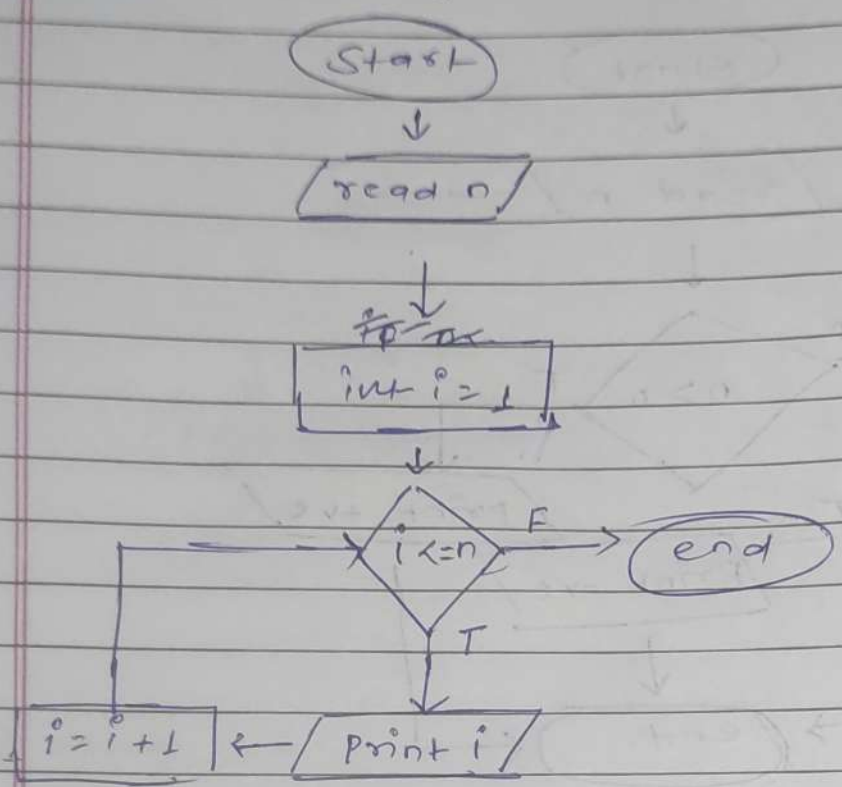 Start
read n
int i = 1
i <= n
F
end
T
i = i + 1
print i